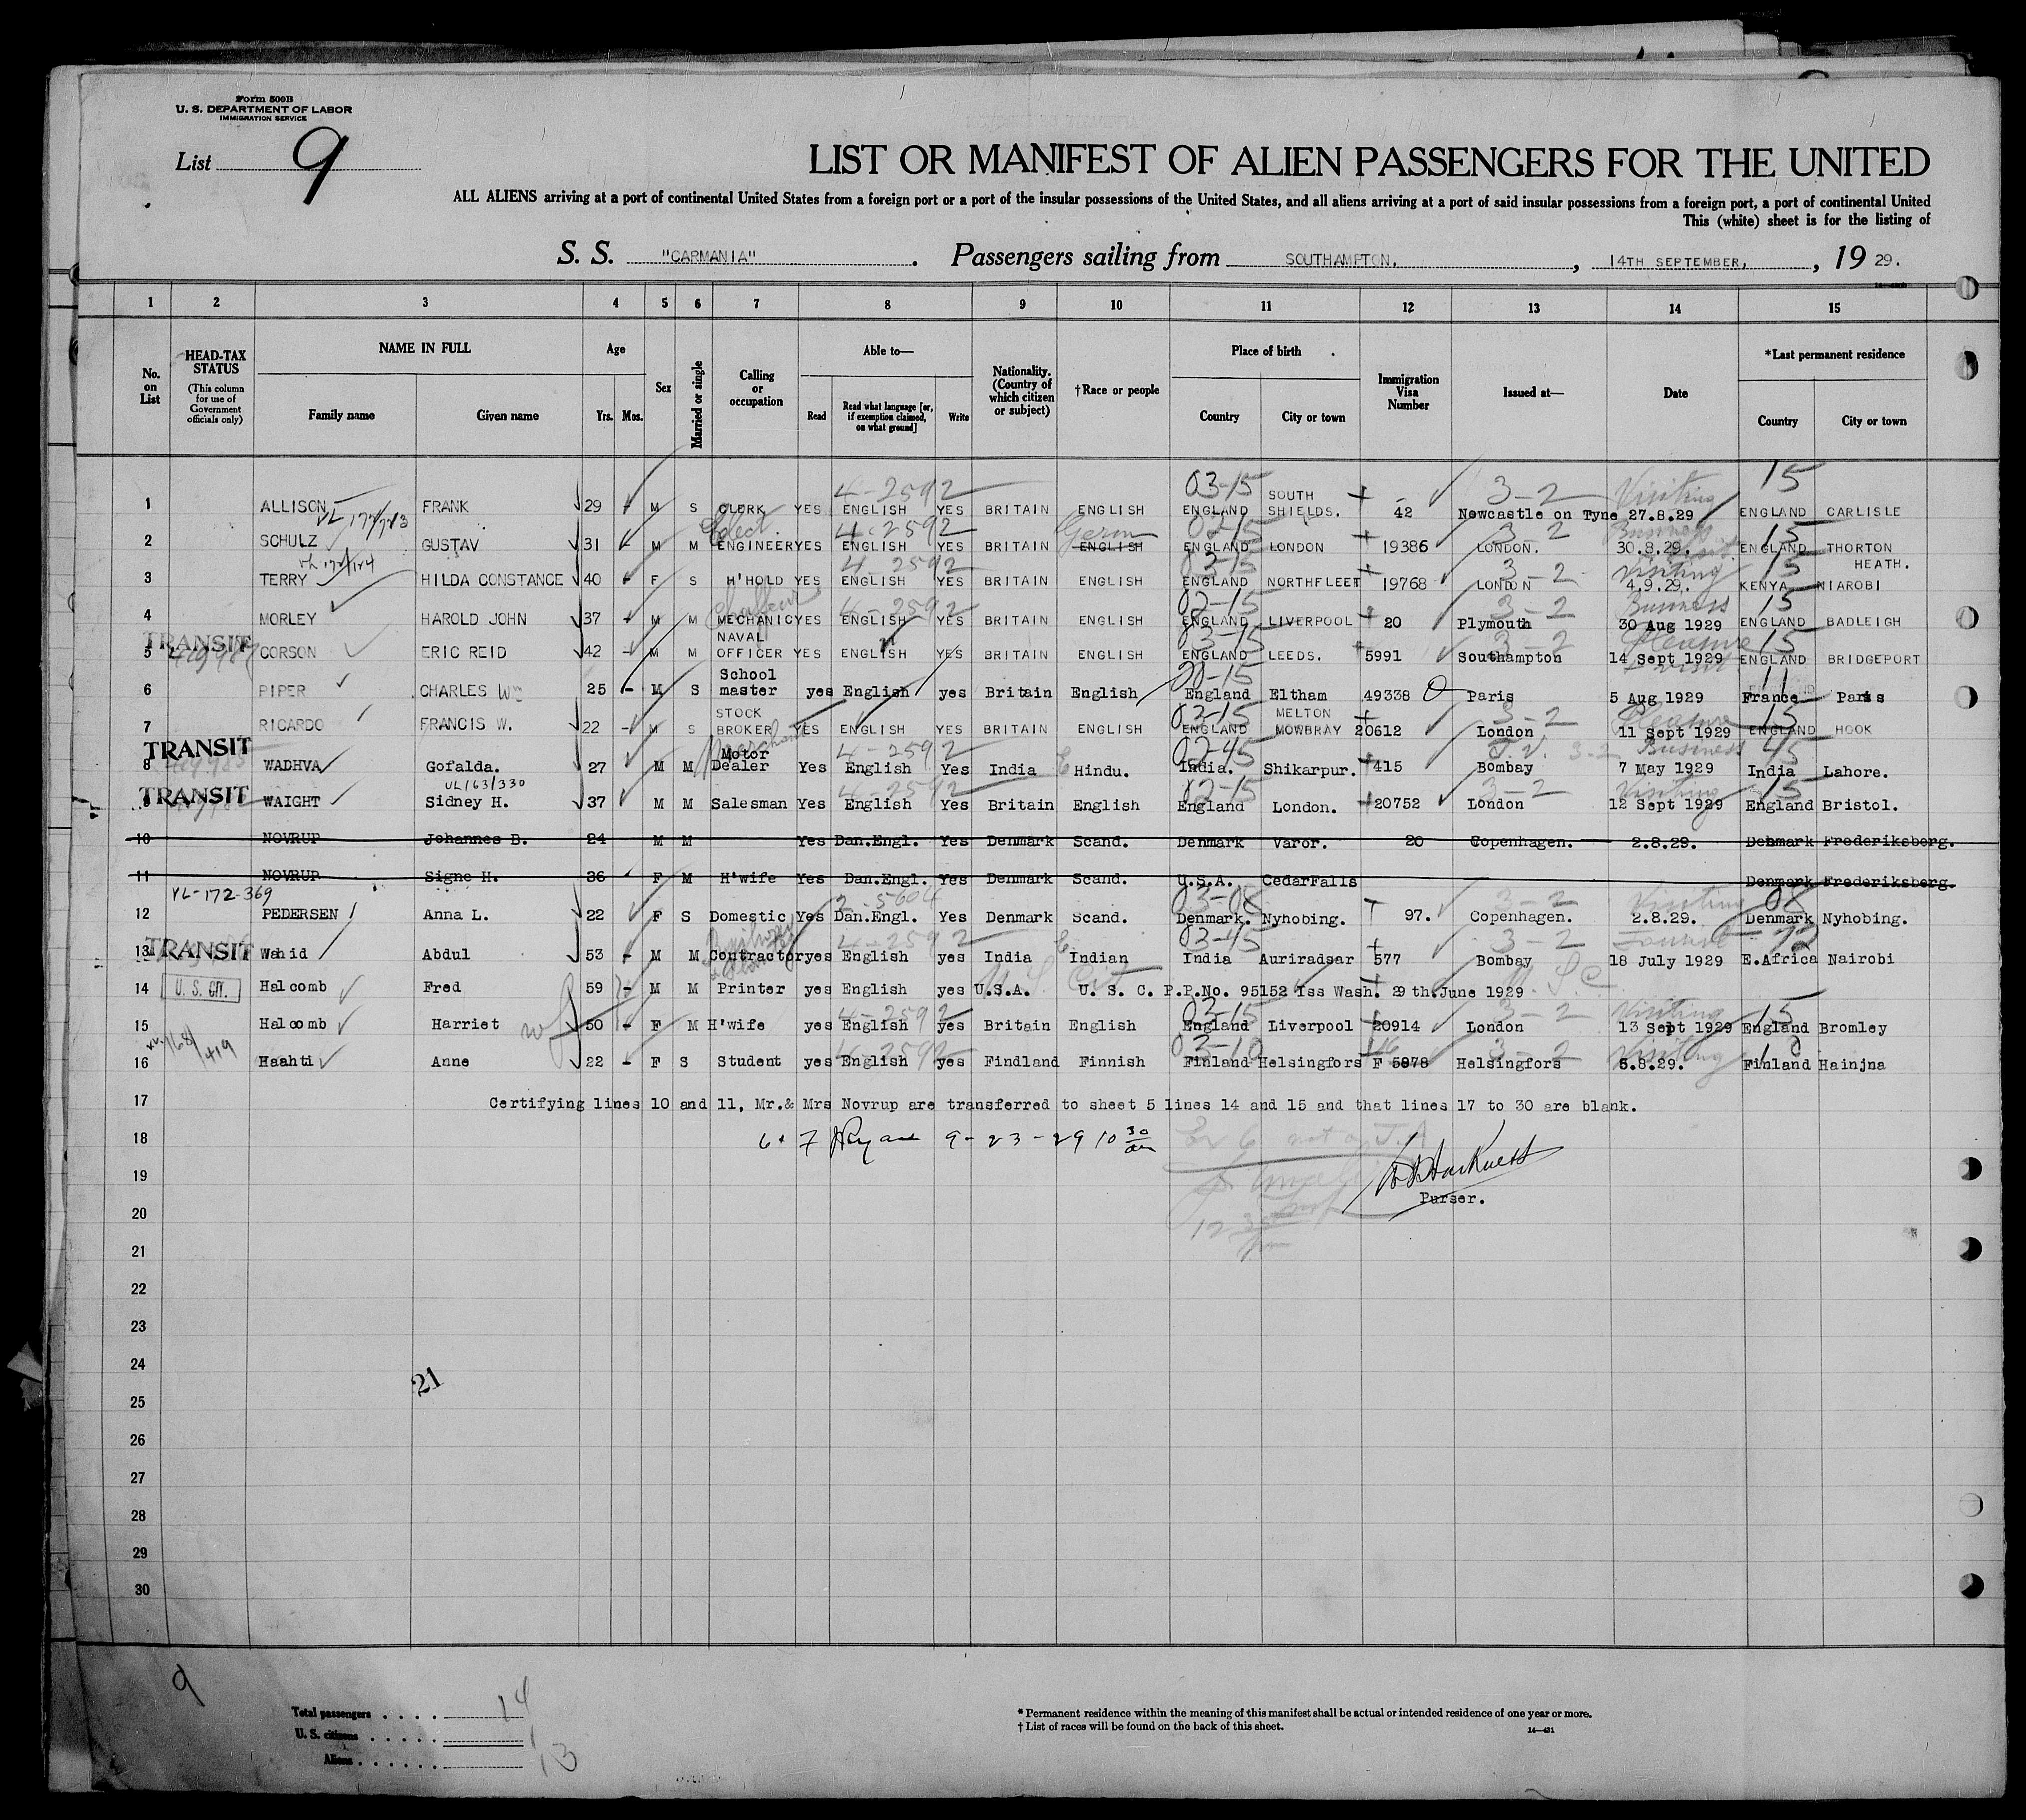 Form 500B
U. S. DEPARTMENT OF LABOR
IMMIGRATION SERVICE
List 9
LIST OR MANIFEST OF ALIEN PASSENGERS FOR THE UNITED
ALL ALIENS arriving at a port of continental United States from a foreign port or a port of the insular possessions of the United States, and all aliens arriving at a port of said insular possessions from a foreign port, a port of continental United
This (white) sheet is for the listing of
S. S. "CARMANIA". Passengers sailing from SOUTHAMPTON, , 14TH SEPTEMBER, , 19 29.
1 2 3 4 5 6 7 8 9 10 11 12 13 14 15
No. on List
HEAD-TAX STATUS (This column for use of Government officials only)
NAME IN FULL Family name Given name
Age Yrs. Mos.
Sex
Married or single
Calling or occupation
Able to— Read Read what language [or, if exemption claimed, on what ground] Write
Nationality. (Country of which citizen or subject)
†Race or people
Place of birth Country City or town
Immigration Visa Number
Issued at—
Date
*Last permanent residence Country City or town
4-2592 03-15 3-2 Visiting 15
1 ALLISON FRANK 29 M S CLERK YES ENGLISH YES BRITAIN ENGLISH ENGLAND SOUTH SHIELDS. 42 Newcastle on Tyne 27.8.29 ENGLAND CARLISLE
Elect. 4-2592 Germ 02-15 3-2 Business 15
2 SCHULZ GUSTAV 31 M M ENGINEER YES ENGLISH YES BRITAIN ENGLISH ENGLAND LONDON 19386 LONDON. 30.8.29. ENGLAND THORTON HEATH.
4-2592 03-15 3-2 Visiting 15
3 TERRY HILDA CONSTANCE 40 F S H'HOLD YES ENGLISH YES BRITAIN ENGLISH ENGLAND NORTHFLEET 19768 LONDON 4.9.29. KENYA NIAROBI
4-2592 02-15 3-2 Business 15
4 MORLEY HAROLD JOHN 37 M M MECHANIC YES ENGLISH YES BRITAIN ENGLISH ENGLAND LIVERPOOL 20 Plymouth 30 Aug 1929 ENGLAND BADLEIGH
TRANSIT 03-15 3-2 Pleasure visit 15
5 CORSON ERIC REID 42 M M NAVAL OFFICER YES ENGLISH YES BRITAIN ENGLISH ENGLAND LEEDS. 5991 Southampton 14 Sept 1929 ENGLAND BRIDGEPORT
6 PIPER CHARLES Wm 25 - M S School master yes English yes Britain English England Eltham 49338 Paris 5 Aug 1929 France Paris
02-15 3-2 Pleasure 15
7 RICARDO FRANCIS W. 22 - M S STOCK BROKER YES ENGLISH YES BRITAIN ENGLISH ENGLAND MELTON MOWBRAY 20612 London 11 Sept 1929 ENGLAND HOOK
TRANSIT 4-2592 02-45 3-2 Business 45
8 WADHVA Gofalda. 27 M M Motor Dealer Yes English Yes India Hindu. India. Shikarpur. 415 Bombay 7 May 1929 India Lahore.
TRANSIT VL163/330 4-2592 02-15 3-2 Visiting 15
9 WAIGHT Sidney H. 37 M M Salesman Yes English Yes Britain English England London. 20752 London 12 Sept 1929 England Bristol.
10 NOVRUP Johannes B. 24 M M Yes Dan.Engl. Yes Denmark Scand. Denmark Varor. 20 Copenhagen. 2.8.29. Denmark Frederiksberg.
11 NOVRUP Signe H. 36 F M H'wife Yes Dan.Engl. Yes Denmark Scand. U.S.A. CedarFalls Denmark Frederiksberg.
VL-172-369 2-5604 03-08 3-2 Visiting 08
12 PEDERSEN Anna L. 22 F S Domestic Yes Dan.Engl. Yes Denmark Scand. Denmark. Nyhobing. 97. Copenhagen. 2.8.29. Denmark Nyhobing.
TRANSIT 4-2592 03-45 3-2 Tourist 72
13 Wahid Abdul 53 - M M Contractor yes English yes India Indian India Auriradsar 577 Bombay 18 July 1929 E.Africa Nairobi
14 U. S. CIT. Halcomb Fred 59 - M M Printer yes English yes U.S.A. U. S. C. P.P.No. 95152 Iss Wash. 29 th.June 1929
4-2592 03-15 3-2 Visiting 15
15 Halcomb Harriet 50 - F M H'wife yes English yes Britain English England Liverpool 20914 London 13 Sept 1929 England Bromley
168/419 4-2592 03-10 3-2 Visiting
16 Haahti Anne 22 - F S Student yes English yes Findland Finnish Finland Helsingfors F 5878 Helsingfors 5.8.29. Finland Hainjna
17 Certifying lines 10 and 11, Mr.& Mrs Novrup are transferred to sheet 5 lines 14 and 15 and that lines 17 to 30 are blank.
18 6 + 7 9-23-29 10 30 am
19
Purser.
20
21
22
23
24
21
25
26
27
28
29
30
9
Total passengers . . . . 14
U. S. citizens . . . . . 1
Aliens . . . . . . 13
* Permanent residence within the meaning of this manifest shall be actual or intended residence of one year or more.
† List of races will be found on the back of this sheet.
14—431